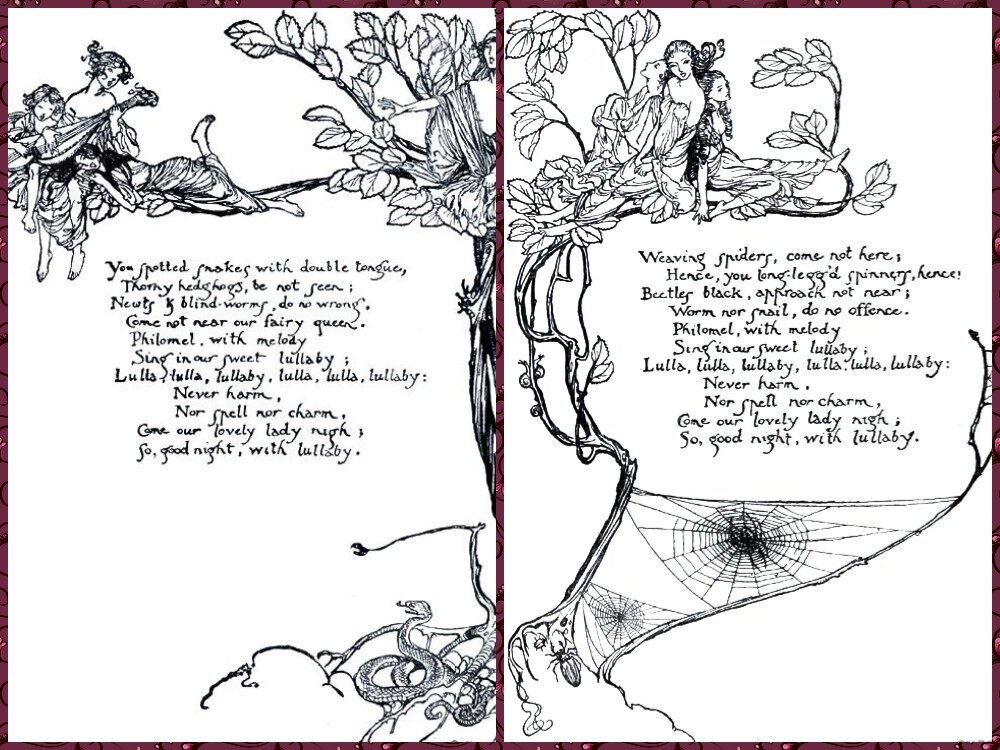 You spotted snakes with double tongue,
Thorny hedghogs, be not seen;
Newts & blind-worms, do no wrong.
Come not near our fairy queen.
Philomel, with melody
Sing in our sweet lullaby;
Lulla, lulla, lullaby, lulla, lulla, lullaby:
Never harm,
Nor spell nor charm,
Come our lovely lady nigh;
So, good night, with lullaby.
Weaving spiders, come not here;
Hence, you long-legg'd spinners, hence!
Beetles black, approach not near;
Worm nor snail, do no offence.
Philomel, with melody
Sing in our sweet lullaby;
Lulla, lulla, lullaby, lulla, lulla, lullaby:
Never harm,
Nor spell nor charm,
Come our lovely lady nigh;
So, good night, with lullaby.